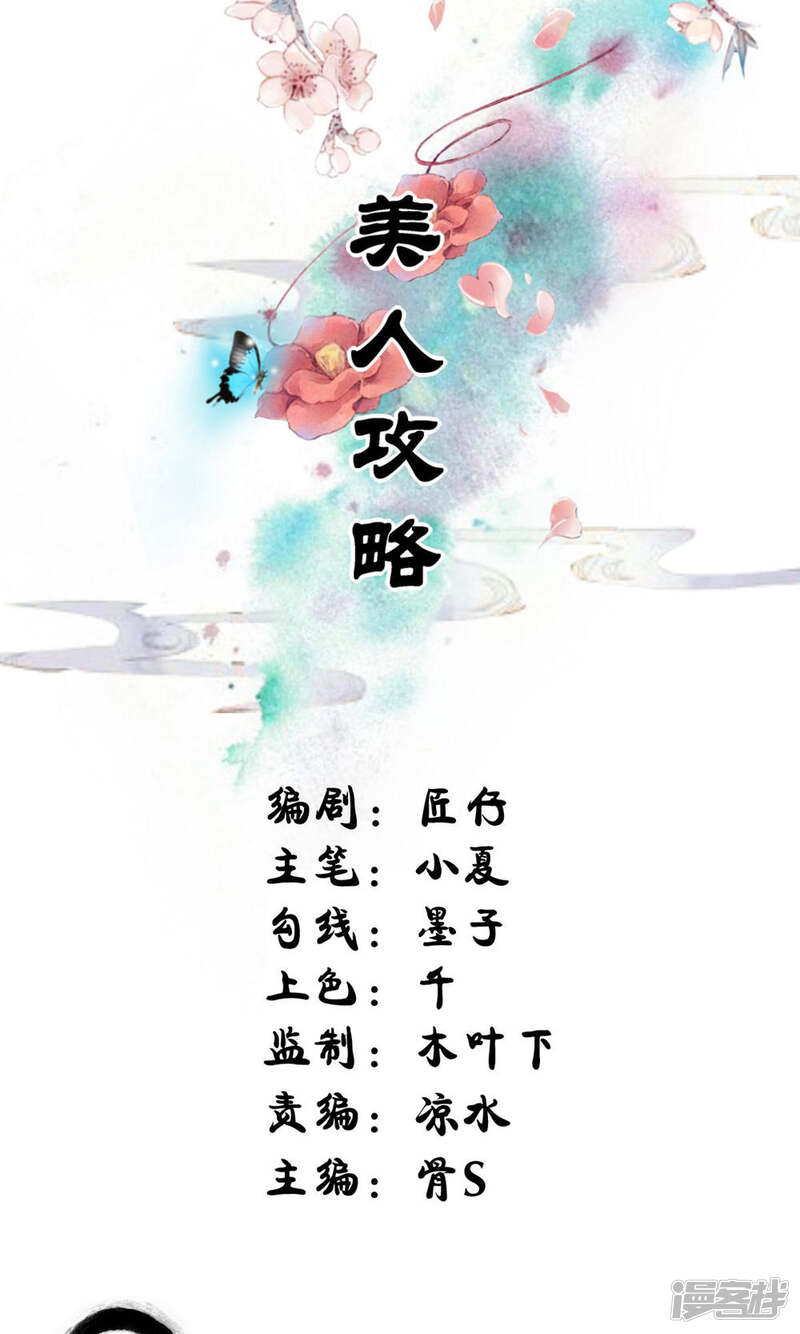 美人攻略
编剧：匠仔
主笔：小夏
勾线：墨子
上色：千
监制：木叶下
责编：凉水
主编：骨S
漫客栈